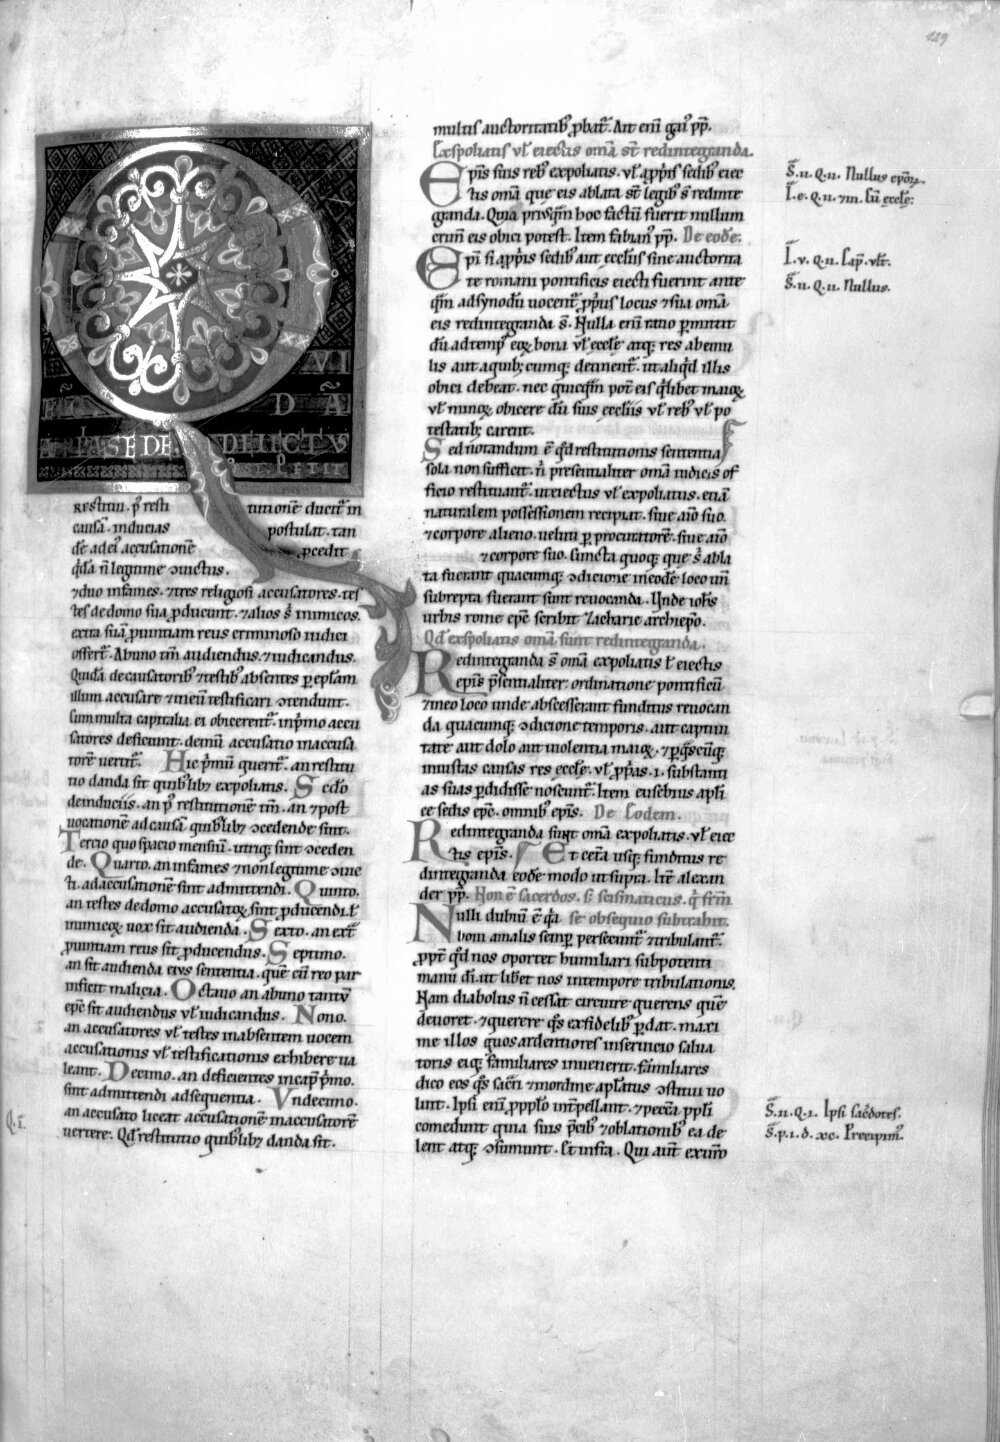 189
QVI
DĀ
A SEDE DEIECTVS
restitui. p̄ resti tutionē ducit̄ in
causā. inducias postulat. tan
dē ad ei' accusationē ꝓcedit
q̄dā ñ legitime ↄiuctus.
⁊ duo infames. ⁊ tres religiosi accusatores. tes
tes de domo sua ꝓducunt. ⁊ alios s̄ inimicos.
extra suā ꝓuintiam reus criminoso iudici
offert̄. Ab uno tm̄ audiendus. ⁊ iudicandus.
Quidā de causatorib' ⁊ testib' absentes ꝑ epl̄am
illum accusare ⁊ in eum testificari ↄtendunt.
Cum multa capitalia ei obicerent̄. in p'mo accu
satores deficiunt. demū accusatio in accusa
torē uertit̄. Hic p'mū querit̄. an restitu
tio danda sit quib'libȝ expoliatis. Scd̄o
de induciis. an p' restitutionē tm̄. an ⁊ post
uocationē ad causā quib'libȝ ↄcedende sint.
Tercio quo spacio mensiū. utriq; sint ↄceden
de. Quarto. an infames ⁊ non legitime ↄiuc
ti. ad accusationē sint admittendi. Quinto.
an testes de domo accusatoꝝ sint ꝓducendi. ł
inimicoꝝ uox sit audienda. Sexto. an ext̄
ꝓuintiam reus sit ꝓducendus. Septimo.
an sit audienda eius sententia. quē cū reo par
inficit malicia. Octauo an ab uno tantū
ep̄c sit audiendus vł iudicandus. Nono.
an accusatores vł testes in absentem uocem
accusationis vł testificationis exhibere ua
leant. Decimo. an deficientes in cap̄ p'mo.
sint admittendi ad sequentia. Vndecimo.
an accusato liceat accusationē in accusatorē
uertere. Qd̄ restitutio quib'libȝ danda sit.
Q.I.
multis auctoritatib' ꝓbat̄. Ait eni᷑ gai' pp̄.
Exspoliatis vł eiectis om̄a st̄ redintegranda.
Ep̄is suis reb' expoliatis. vł a ꝓp'is sedib' eiec
tis om̄a que eis ablata st̄ legib' s̄ redinte
granda. Quia priusq̄m hoc factū fuerit nullum
crimē eis obici potest. Item fabian' pp̄. De eodē.
Epī si a ꝓp'is sedib' aut ecclesiis sine auctorita
te romani pontificis eiecti fuerint ante
q̄m ad synodū uocent̄. ꝓp'ius locus ⁊ sua om̄a
eis redintegranda s̄. Nulla eni᷑ ratio ꝑmittit
dū ad temp' eoꝝ bona vł eccl̄e atq; res ab emu
lis aut a quib; cumq; detinent̄. ut aliq'd illis
obici debeat. nec quicq̄m pot̄ eis q'libet maioꝝ
vł minoꝝ obicere dū suis ecclesiis vł reb' vł po
testatib; carent.
Sed notandum ē q̄d restitutionis sententia
sola non sufficit. n' presentialiter om̄a iudicis of
ficio restituant̄. ut eiectus vł expoliatus. etiā
naturalem possessionem recipiat. siue aīo suo.
⁊ corpore alieno. ueluti ꝑ procuratorē. siue aīo
⁊ corpore suo. Cuncta quoq; que s' abla
ta fuerant quacumq; ↄdicione in eodē loco un̄
subrepta fuerant sunt reuocanda. Vnde ioh̄s
urbis rome ep̄c scribit Zacharie archiep̄o.
Qd̄ exspoliatis om̄a sunt redintegranda.
Redintegranda s̄ om̄a expoliatis ł eiectis
ep̄is p̄sentialiter: ordinatione pontificū
⁊ in eo loco unde abscesserant funditus reuocan
da quacumq; ↄdicione temporis. aut captiui
tate aut dolo aut uiolentia maioꝝ. ⁊ ꝑ q̄scūq;
iniustas causas res eccl̄e. vł ꝓp'as. i. substanti
as suas ꝑdidisse noscunt̄. Item eusebius apl̄i
ce sedis ep̄c. omnib' ep̄is. De Eodem.
Redintegranda sunt om̄a expoliatis. vł eiec
tis ep̄is. Et cet̄a usq; funditus re
dintegranda eodē modo ut supra. Itē alexan
der pp̄. Non ē sacerdos. s; scismaticus. q' frm̄
Nulli dubiū ē q'a se obsequio subtrahit.
boni a malis semp̄ persecunt̄ ⁊ tribulant̄.
ꝓpt̄ q̄d nos oportet humiliari sub potenti
manu dī. ut libet nos in tempore tribulationis.
Nam diabolus ñ cessat circuire querens quē
deuoret. ⁊ querere q̄s ex fidelib' ꝑdat. maxi
me illos quos ardentiores in seruicio salua
toris eiq; familiares inuenerit. familiares
dico eos q̄s sacri ⁊ in ordine apl̄atus ↄstitui uo
luit. Ipsi eni᷑ ꝓ ppl̄o int̄pellant. ⁊ pecc̄a ppl̄i
comedunt quia suis p̄cib' ⁊ oblationib' ea de
lent atq; ↄsumunt. Et infra. Qui aut̄ ex uīro
S̄.II.Q.II. Nullus ep̄oꝝ.
I.e.Q.II. ⁊ III. Cū eccl̄e:
I.v.Q.II. Cap. vlt̄.
S̄.II.Q.II. Nullus.
S̄.II.Q.I. Ipsi sac̄dotes.
S̄.p.I.d.xc. Precipim'.